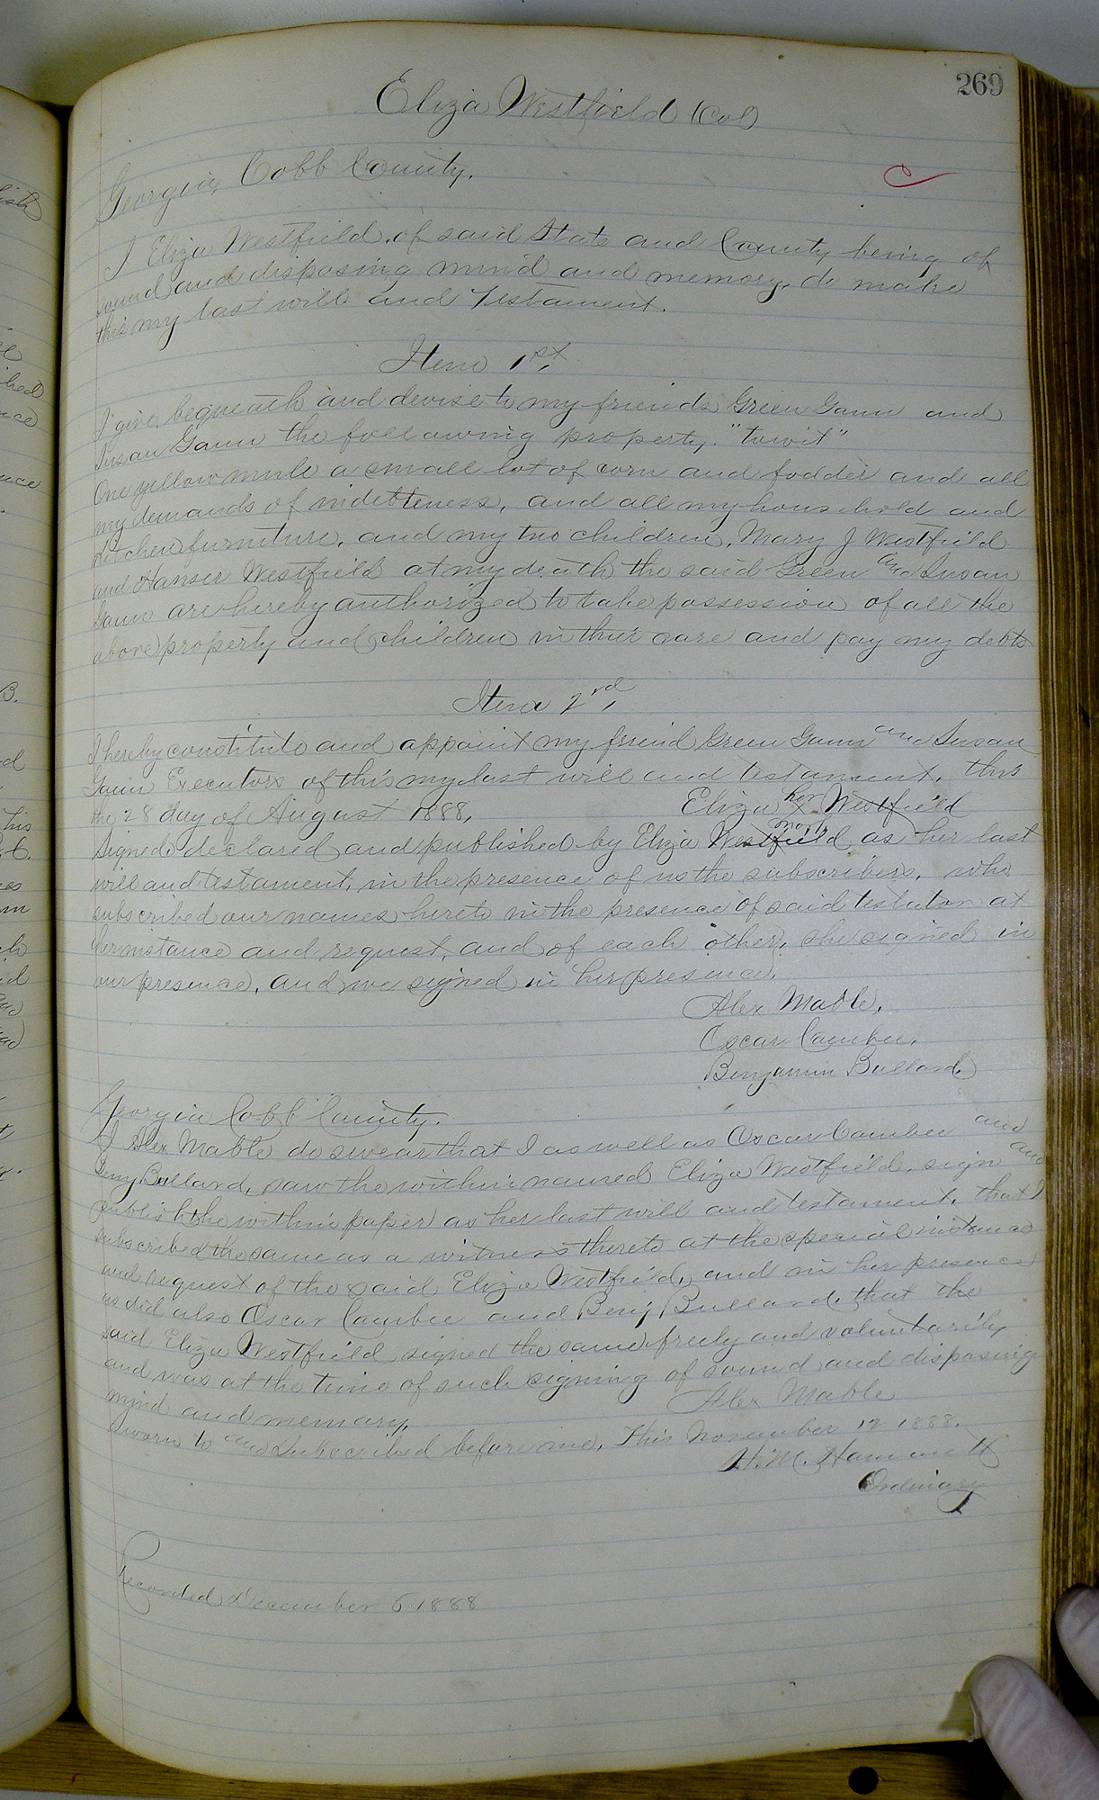 269
Eliza Westfield (Col)
Georgia, Cobb County.
I Eliza Westfield, of said State and County being of
sound and disposing mind and memory, do make
this my last will and Testament.
Item 1st,
I give, bequeath and devise to my friends Green Gann and
Susan Gann the following property, "towit"
One yellow mule a small lot of corn and fodder and all
my demands of indebteness, and all my household and
kitchen furniture, and my two children, Mary J Westfield
and Hanser Westfield at my death the said Green and Susan
Gann are hereby authorized to take possession of all the
above property and children in their care and pay my debts
Item 2nd,
I hereby constitute and appoint my friend Green Gann and Susan
Gann Executors of this my last will and testament, this
the 28 day of August 1888,
Eliza her X mark Westfield
Signed, declared and published by Eliza Westfield as her last
will and testament, in the presence of us the subscribers, who
subscribed our names hereto in the presence of said testator at
her instance and request, and of each other, she signed in
our presence, and we signed in her presence.
Alex Mable,
Oscar Cambee,
Benjamin Bullard
Georgia Cobb County.
I Alex Mable do swear that I as well as Oscar Cambee and
Benj Bullard, saw the within named Eliza Westfield, sign and
publish the within paper as her last will and testament, that I
subscribed the same as a witness thereto at the special instance
and request of the said Eliza Westfield, and in her presence
as did also Oscar Cambee and Benj Bullard, that the
said Eliza Westfield signed the same freely and voluntarily
and was at the time of such signing of sound and disposing
mind and memory,
Alex Mable
Sworn to and Subscribed before me, this November 12 1888.
H. M. Hammett
Ordinary
Recorded December 6 1888